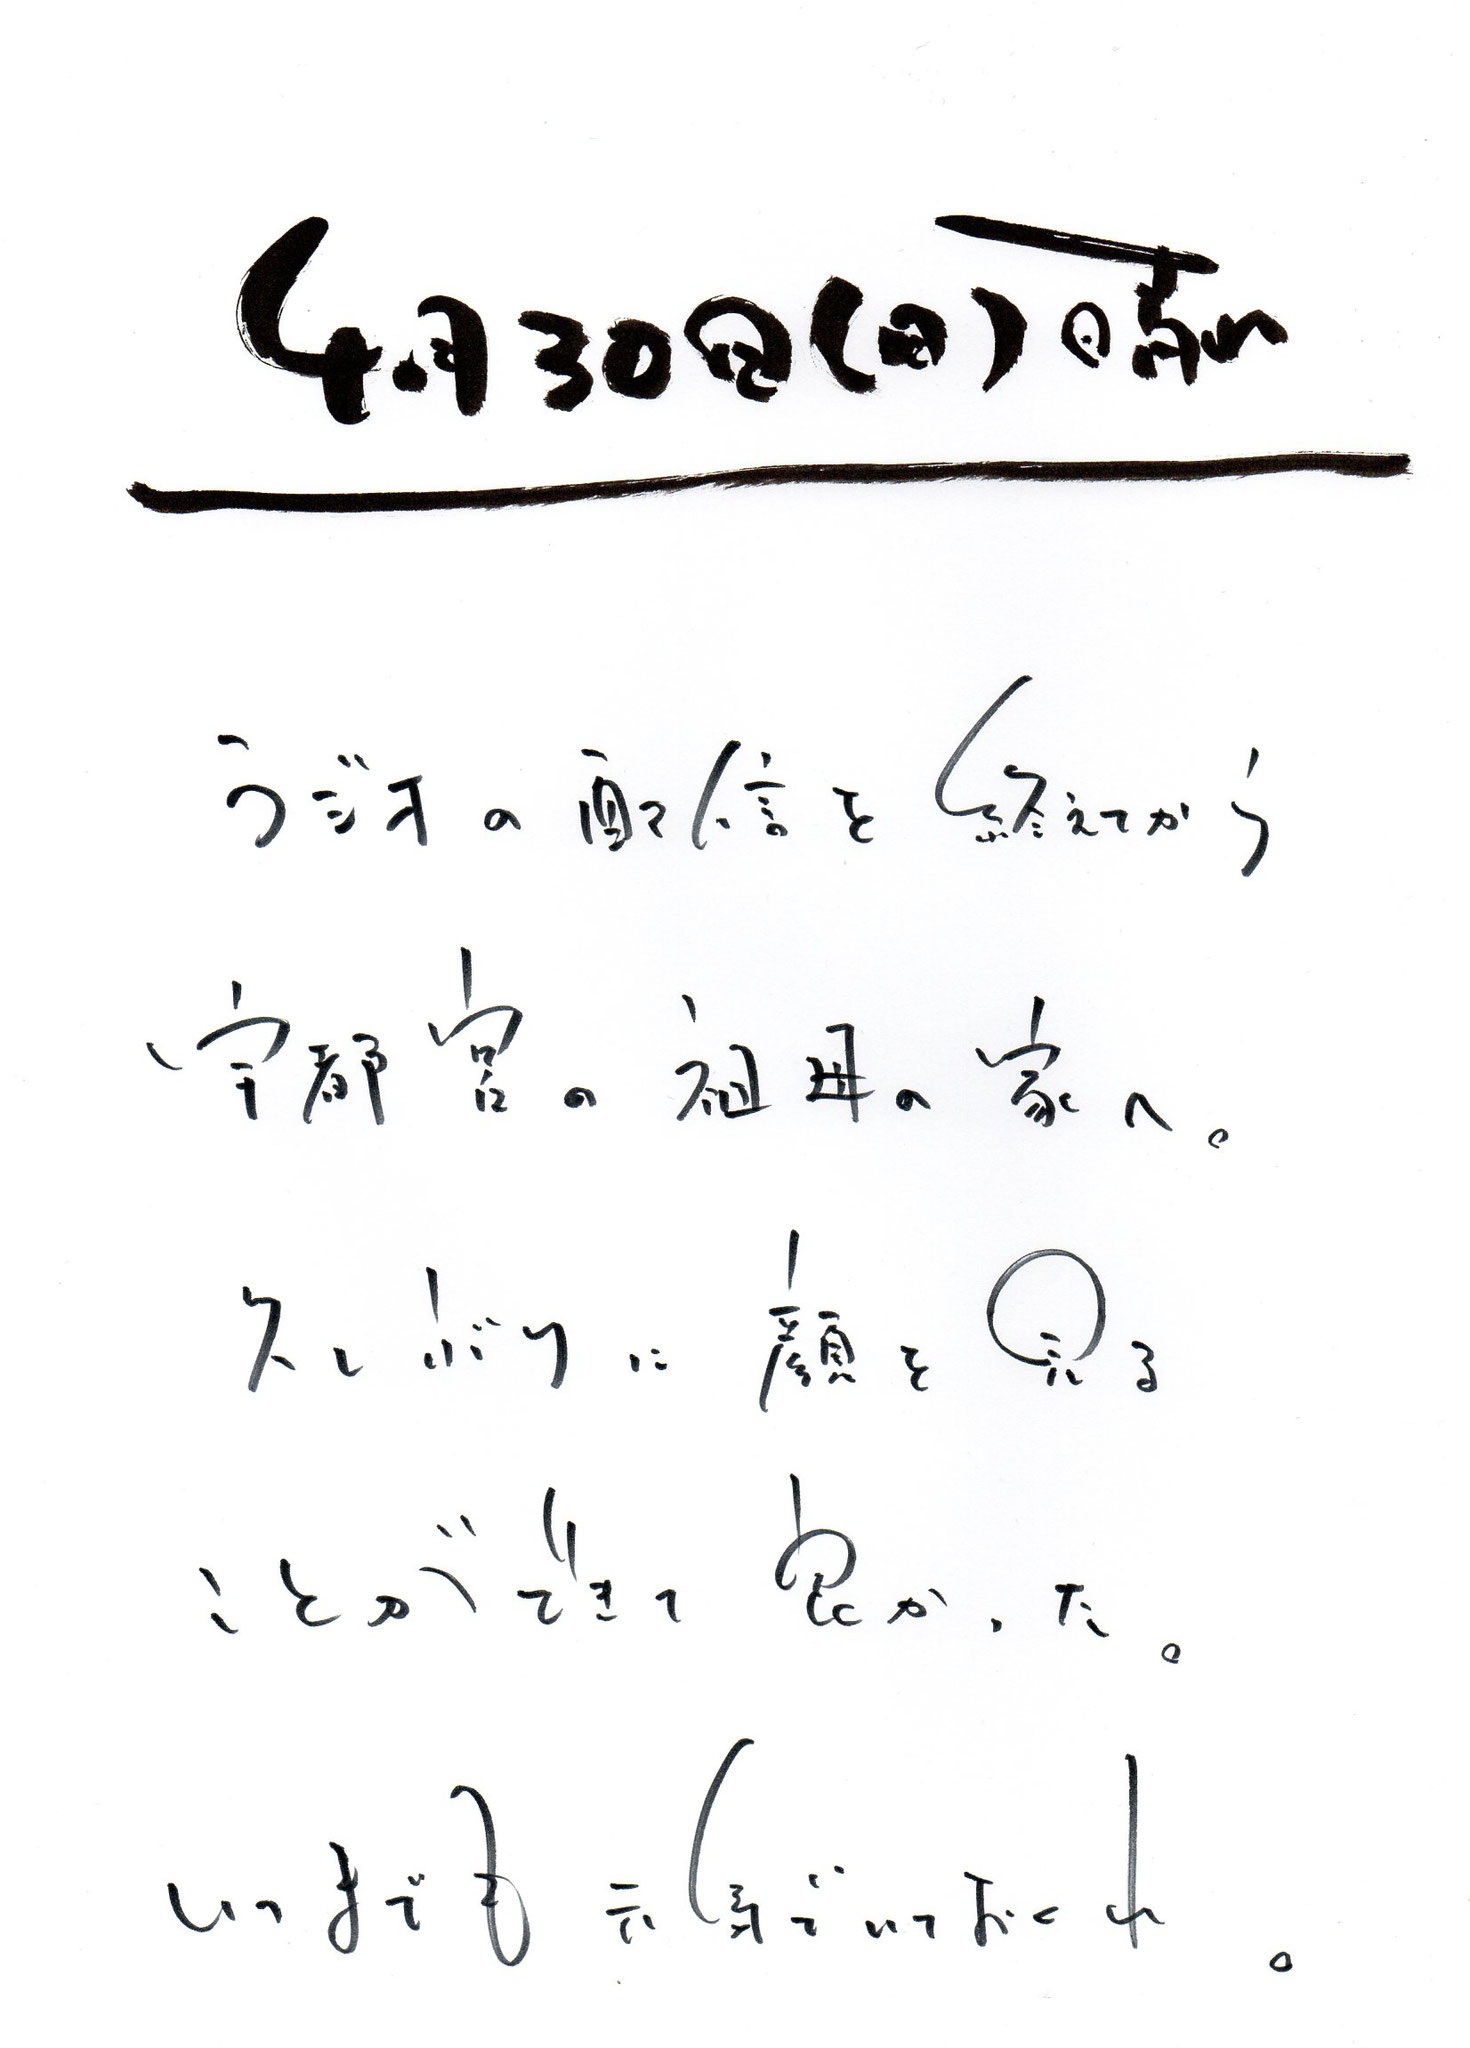 4月30日(日)晴れ
ラジオの配信を終えてから
宇都宮の祖母の家へ。
久しぶりに顔を見る
ことができて良かった。
いつまでも元気でいておくれ。